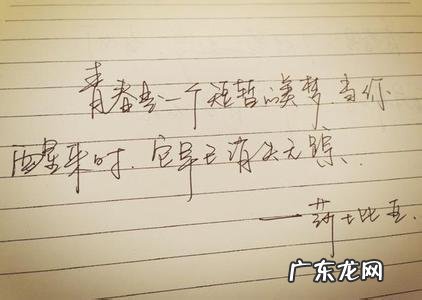 青春是一个短暂的美梦，当你
醒来时，它早已消失无踪.
——莎士比亚.
广东龙网